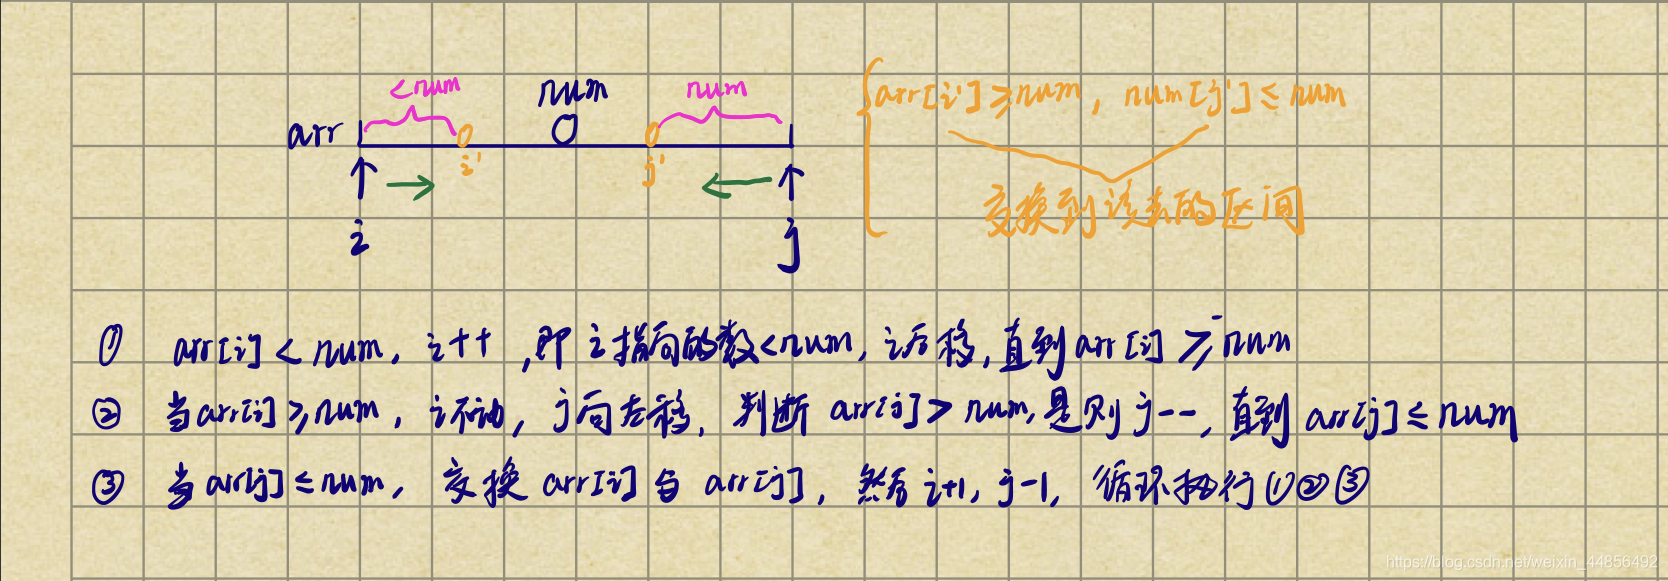 <num num num
arr
i' j'
i j
arr[i'] ≥ num, num[j'] ≤ num
交换到该去的区间
① arr[i] < num, i++, 即 i指向的数<num, i后移, 直到 arr[i] ≥ num
② 当arr[i] ≥ num, i不动, j向左移, 判断 arr[j] > num, 是则 j--, 直到 arr[j] ≤ num
③ 当arr[j] ≤ num, 交换 arr[i] 与 arr[j], 然后 i+1, j-1, 循环执行①②③
https://blog.csdn.net/weixin_44856492